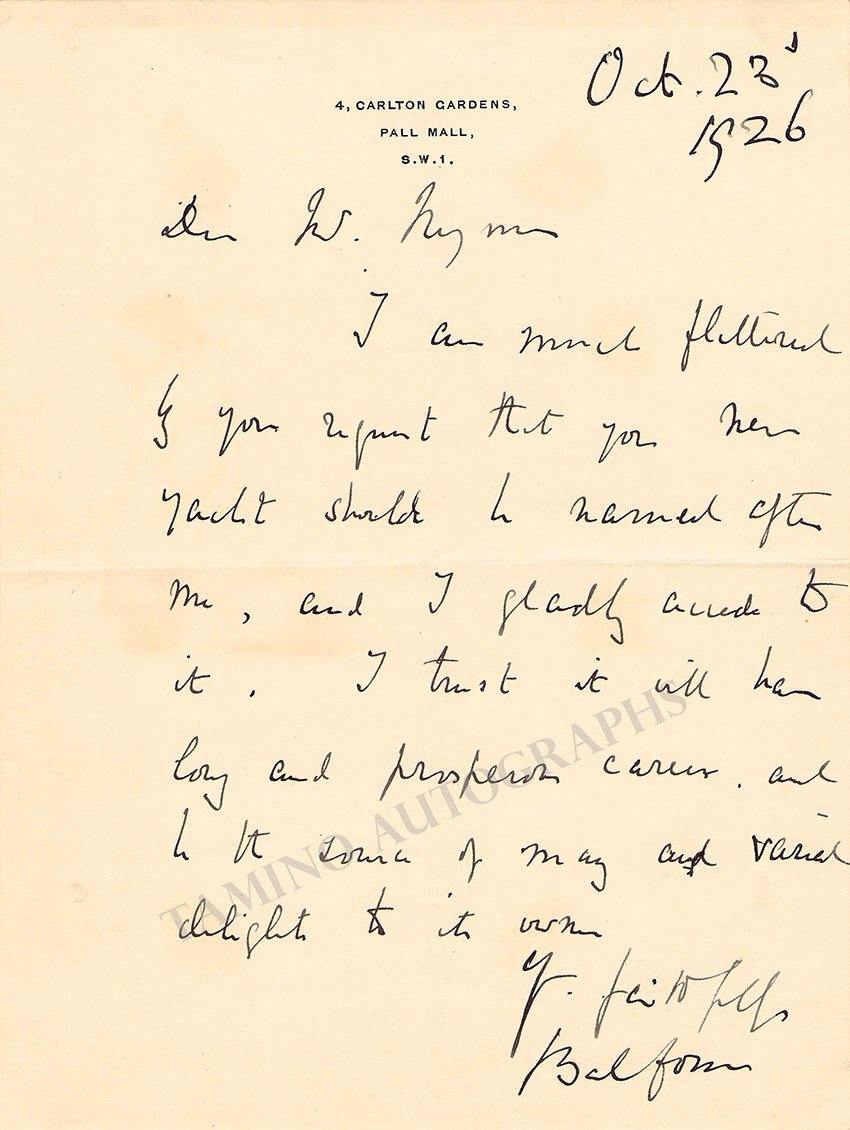 Oct. 23d
1926
4, CARLTON GARDENS,
PALL MALL,
S.W.1.
Dear Mr.
I am much flattered
by your request that your new
yacht should be named after
me, and I gladly accede to
it. I trust it will have
long and prosperous career, and
be the source of many and varied
delights to its owner
Yr. faithfully
Balfour
TAMINO AUTOGRAPHS